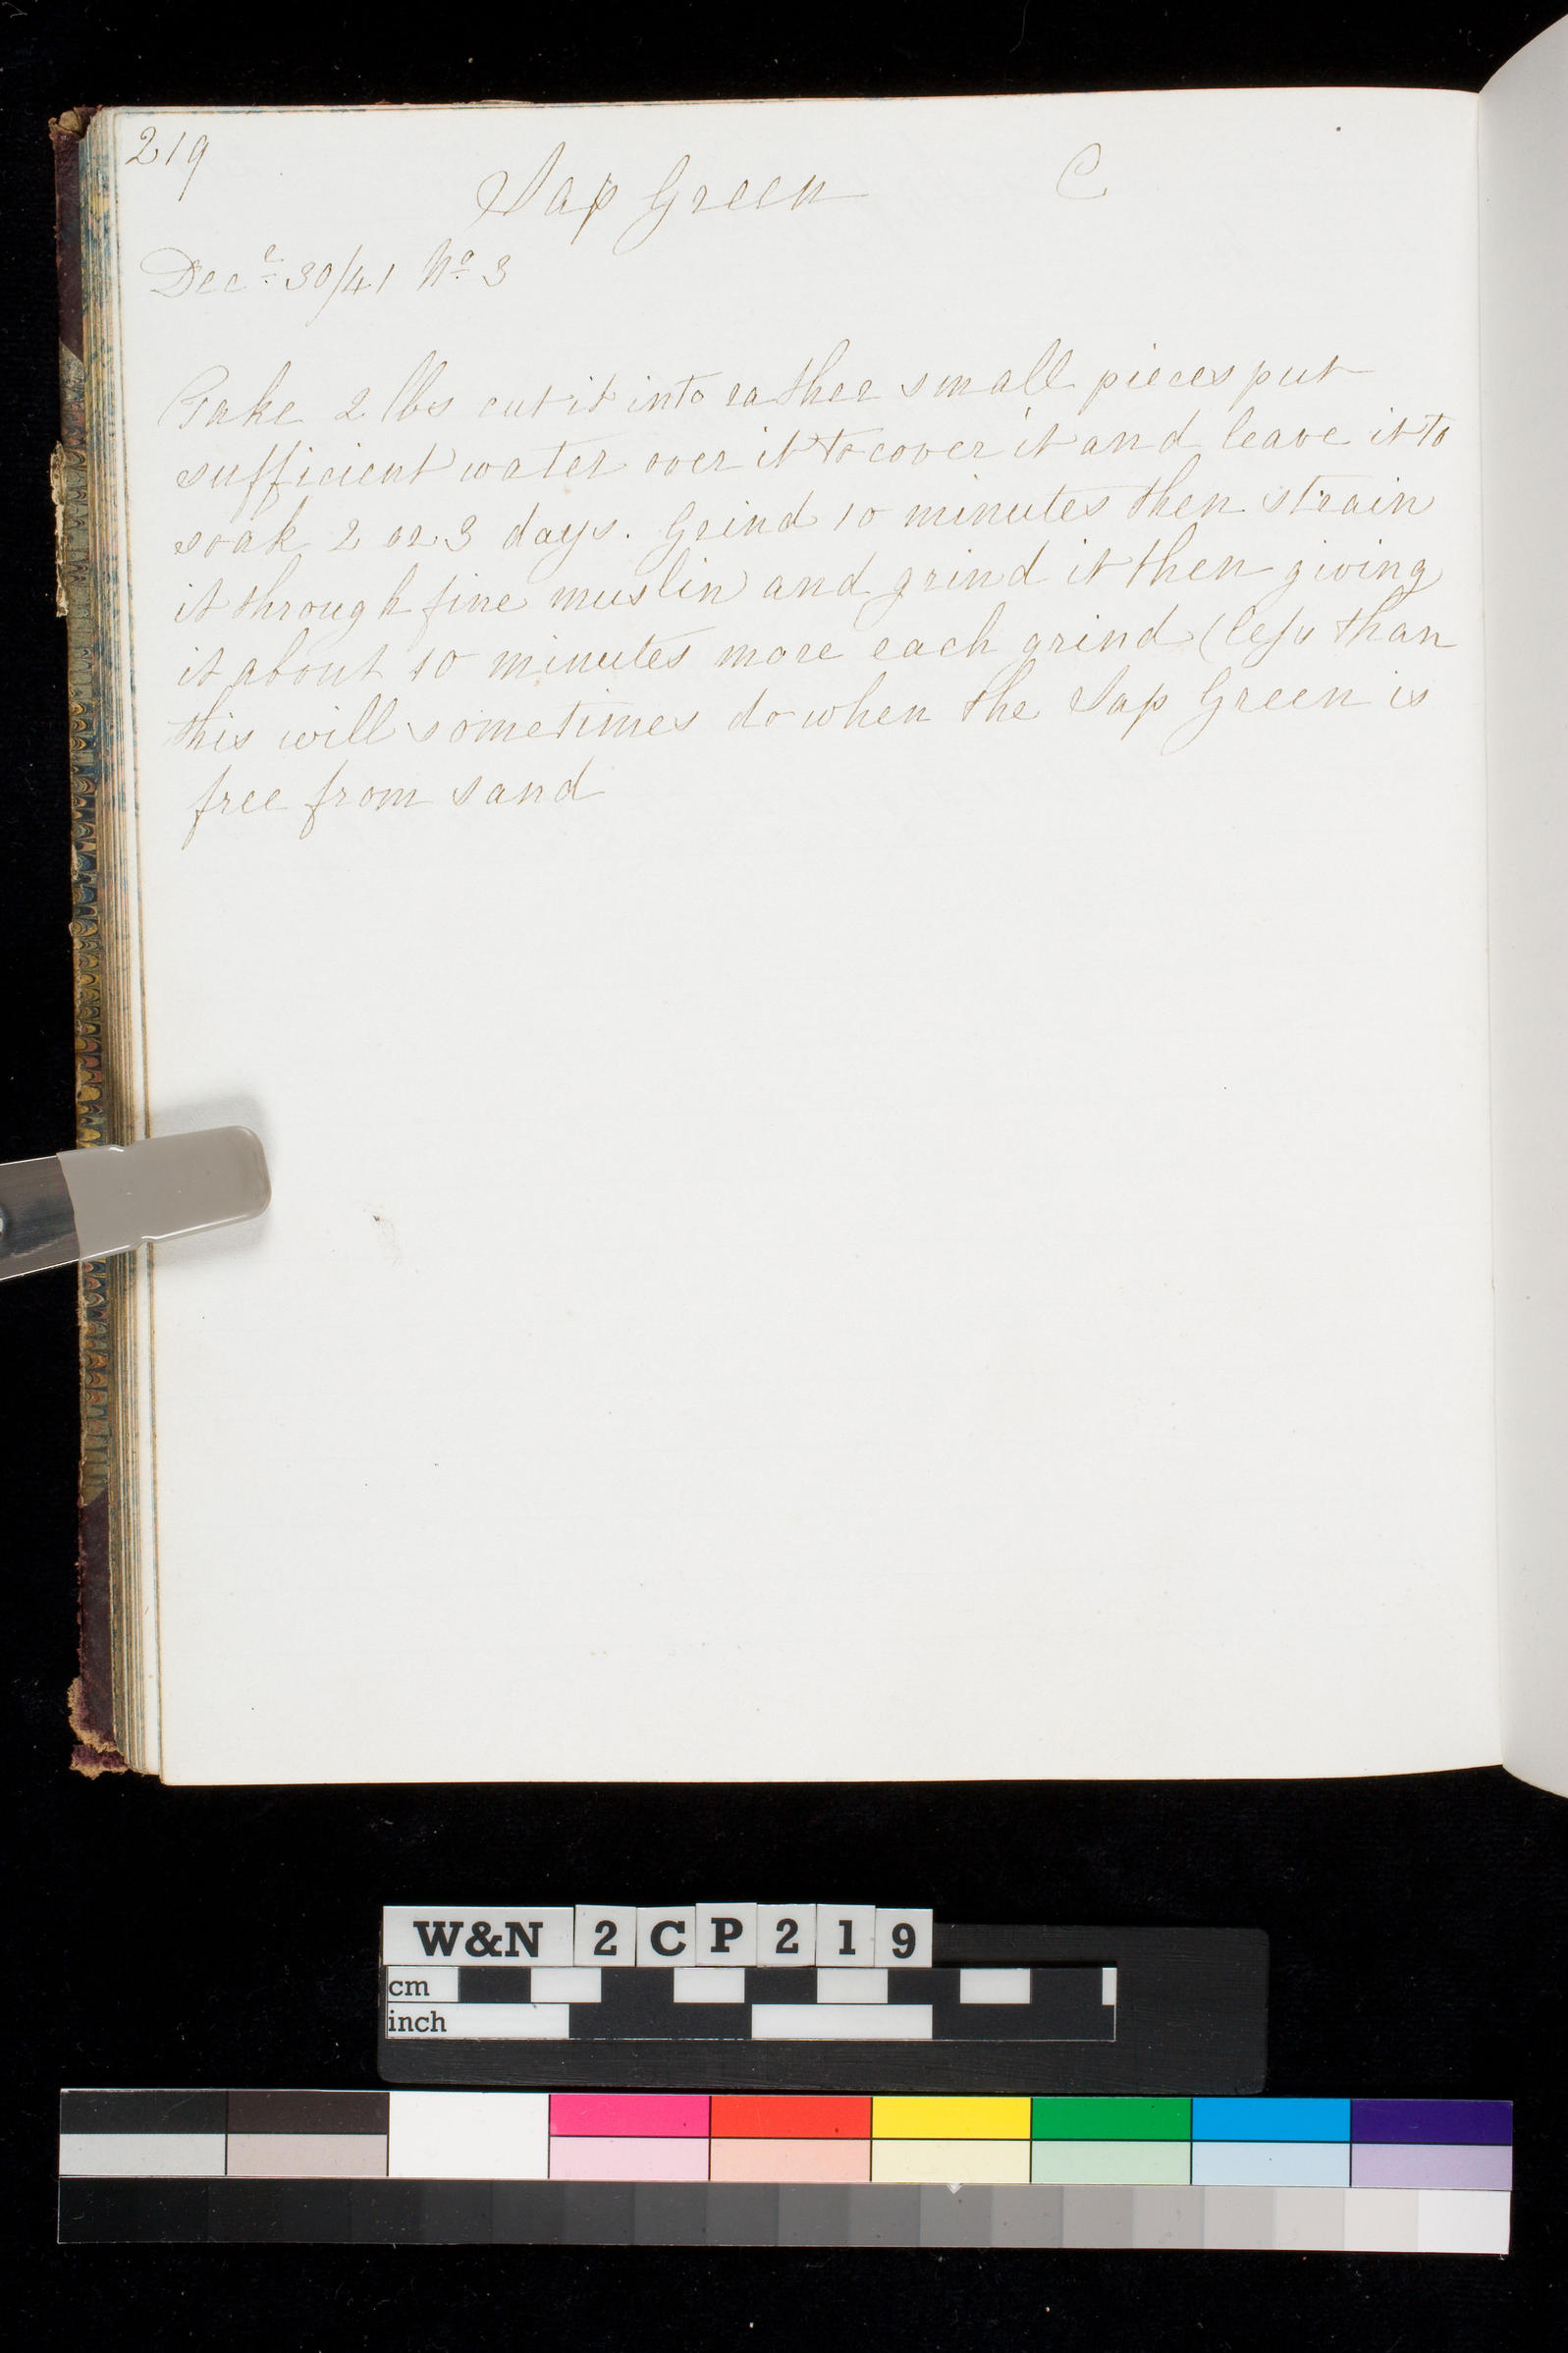 219
Sap Green C
Decr 30/41 No 3
Take 2 lbs cut it into rather small pieces put
sufficient water over it to cover it and leave it to
soak 2 or 3 days. Grind 10 minutes then strain
it through fine muslin and grind it then giving
it about 10 minutes more each grind (less than
this will sometimes do when the Sap Green is
free from sand
W&N 2CP219
cm
inch